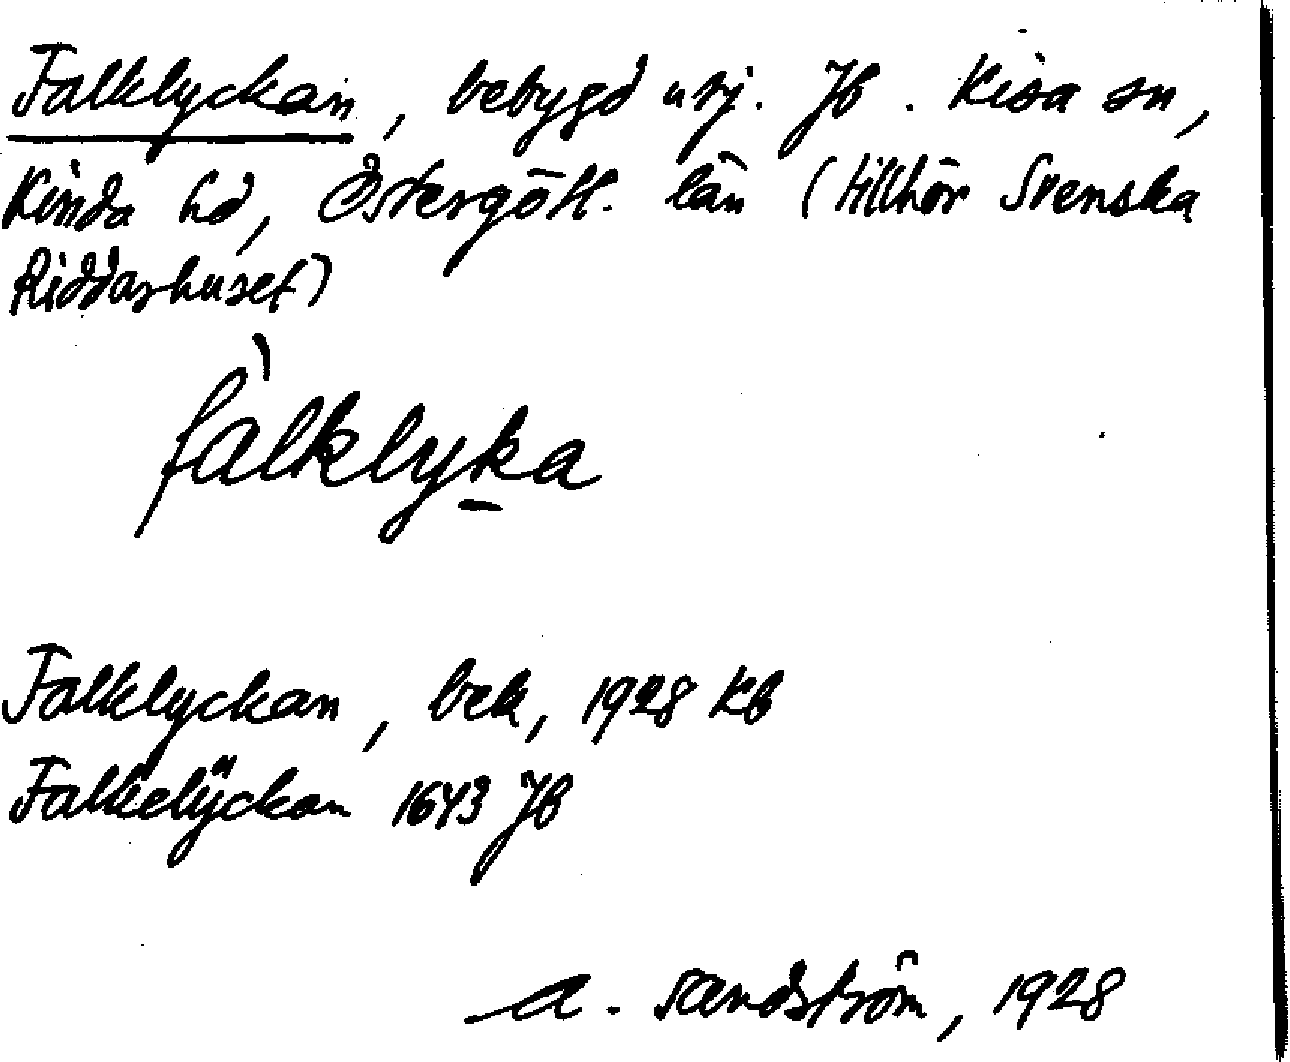 Falklyckan, bebygd utj. Jb. Kisa sn,
Kinda hd, Östergötl. län (tillhör Svenska
Riddarhuset)
fàlklyka
Falklyckan, bek, 1928 Kb
Falkelÿckan 1643 Jb
A. Sandström, 1928